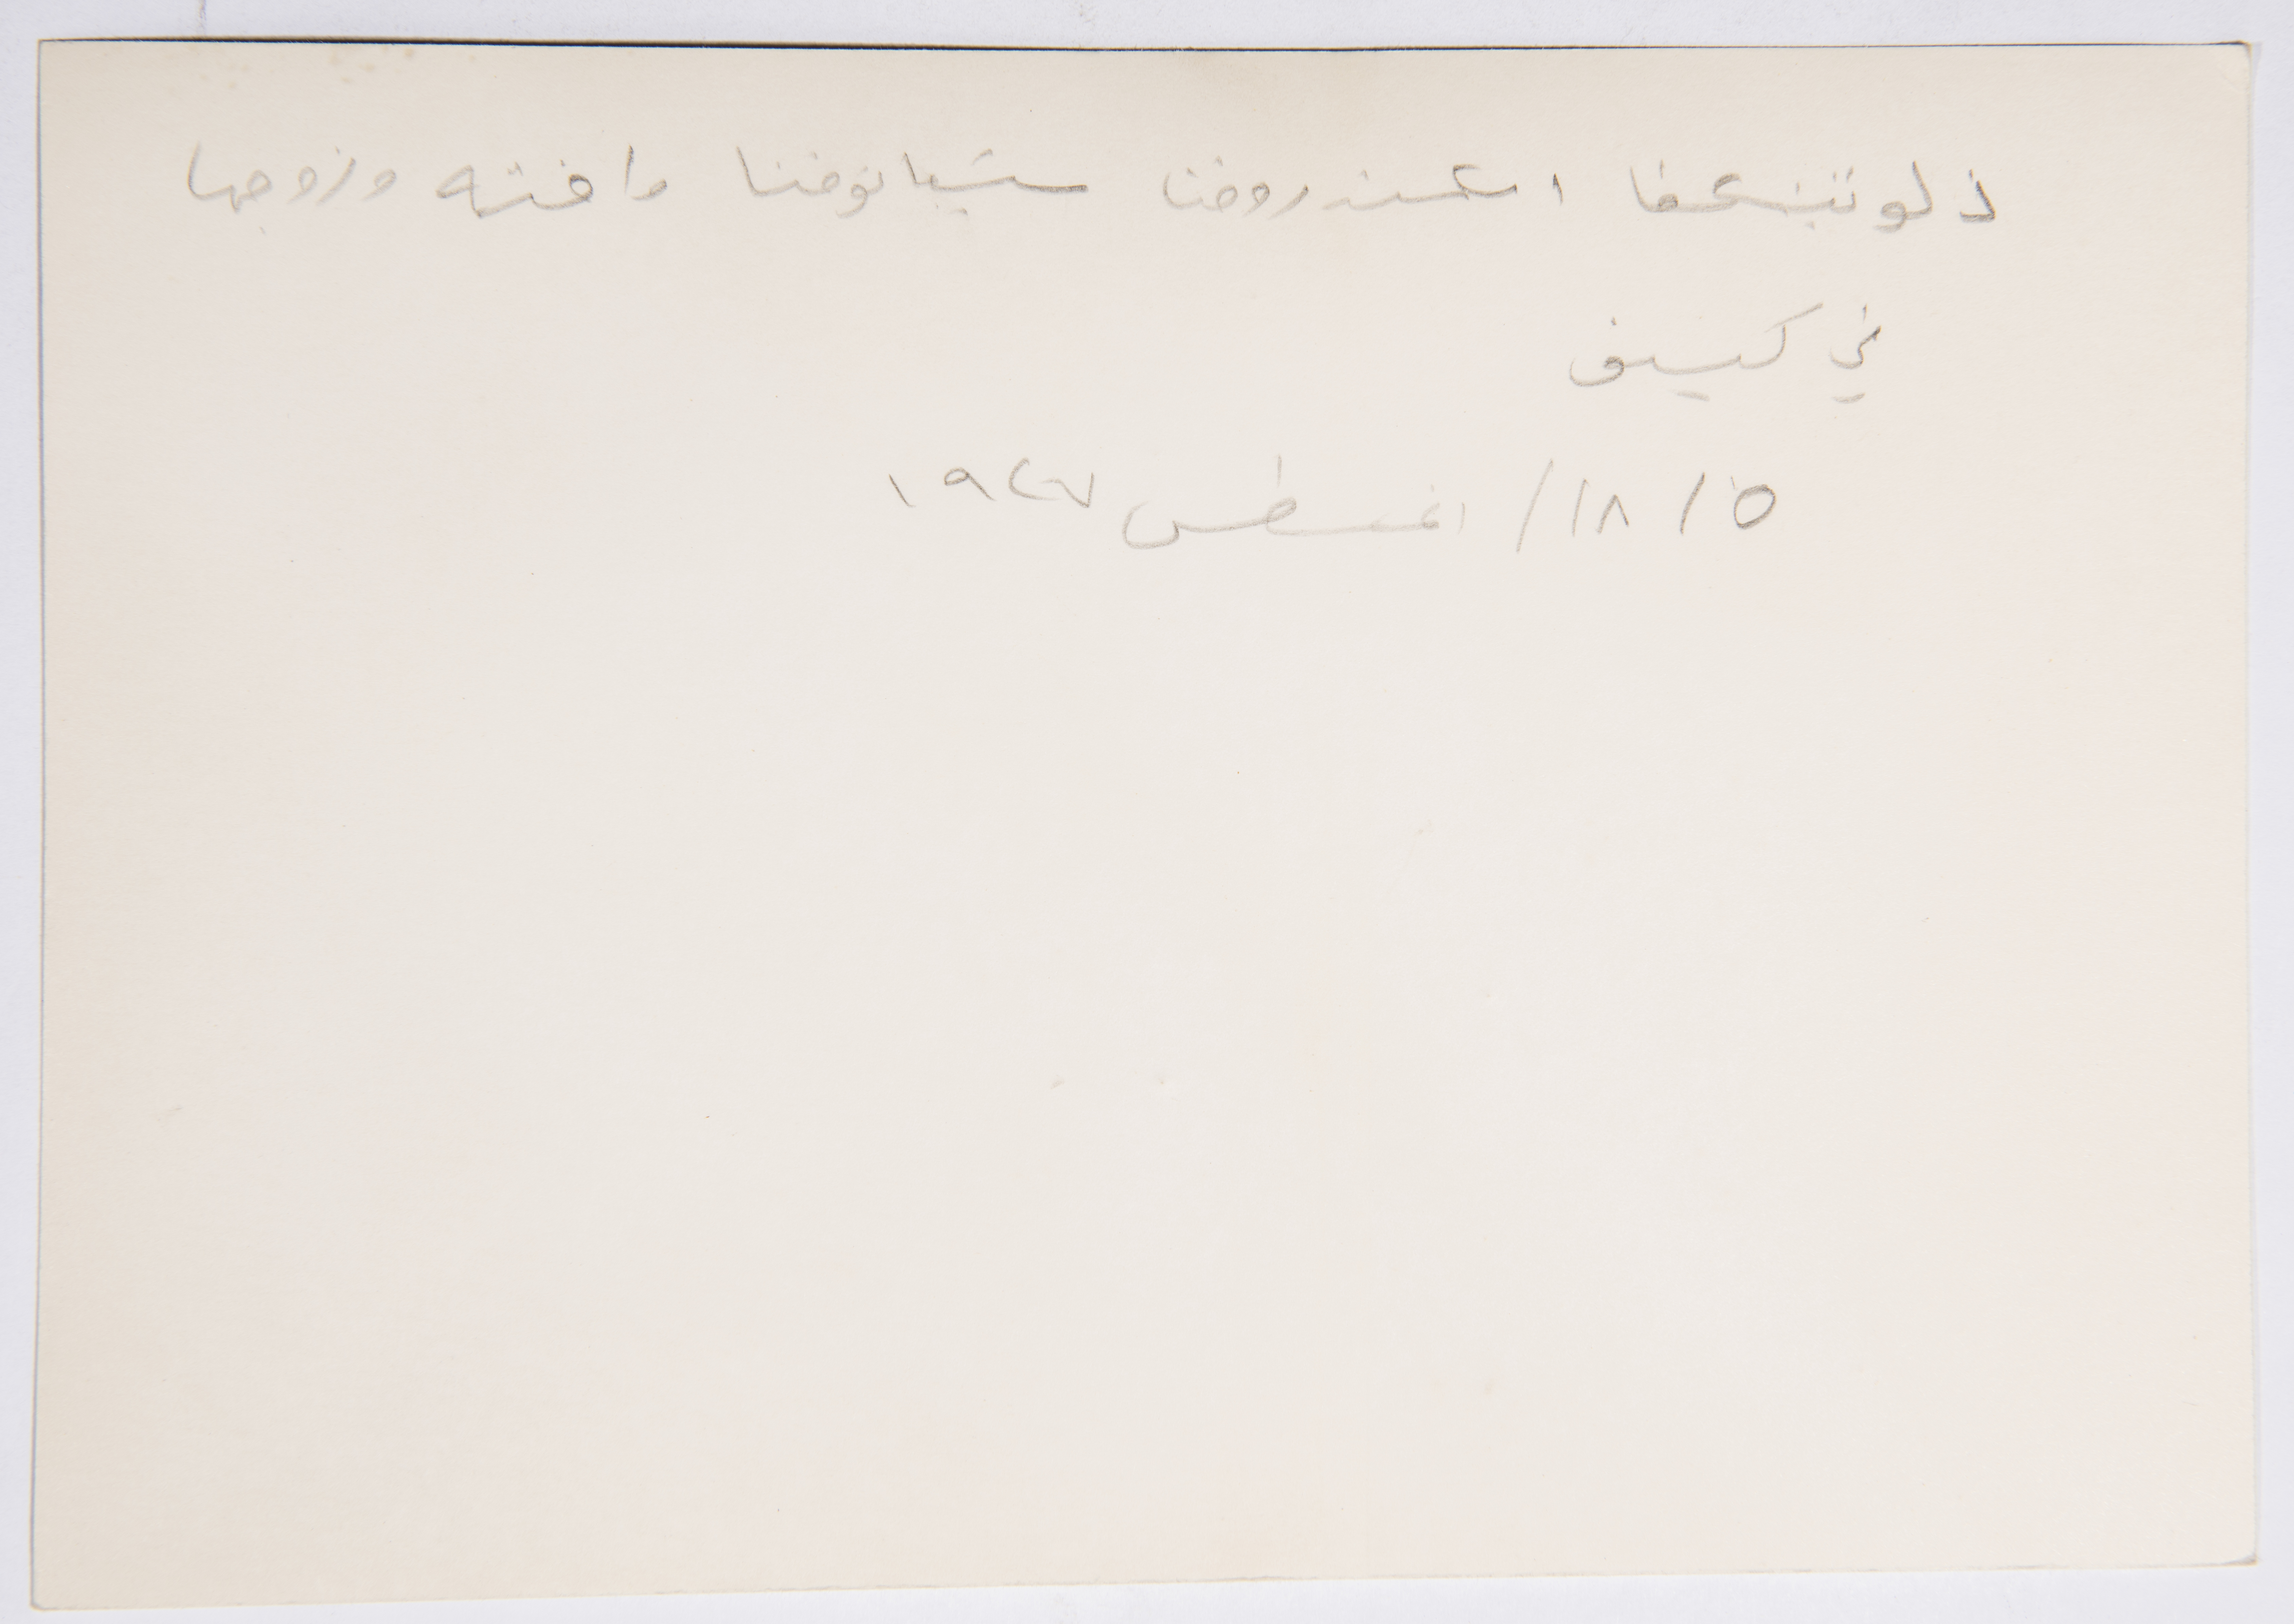 ذلوتنسكفا اسكندروفنا ستيبانوفنا واخته وزوجها
في كييف
١٨/٥/ اغسطس ١٩٢٧